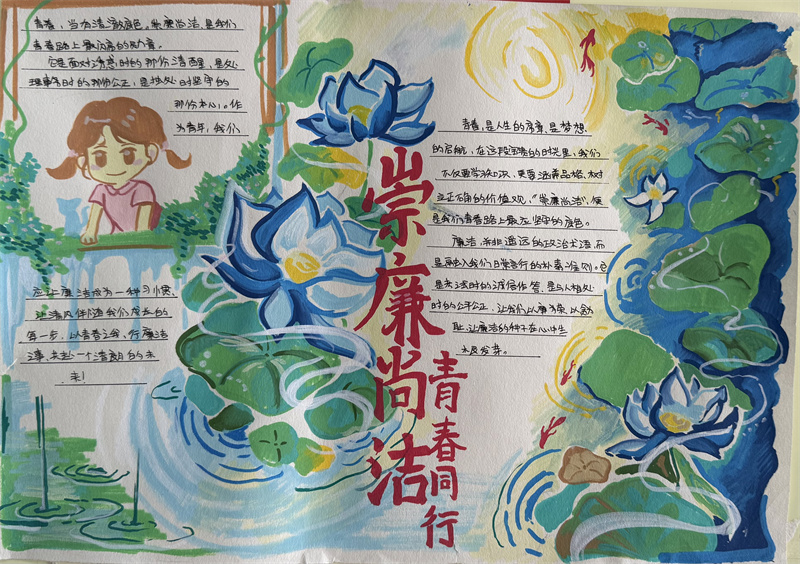 青春，当有清澈底色。崇廉尚洁，是我们
青春路上最闪亮的
它是面对诱惑时的那份清醒，是处
理事务时的那份公正，是独处时坚守的
那份本心。作
为青年，我们
应让廉洁成为一种习惯，
让清风伴随我们成长的
每一步，以青春之我，行廉洁
之事，共赴一个清朗的未
来！
崇廉尚洁
青春同行
青春，是人生的序章，是梦想
的启航，在这段宝贵的时光里，我们
不仅要学习知识，更要涵养品格，树
立正确的价值观，“崇廉尚洁”，便
是我们青春路上最应坚守的底色。
廉洁，并非遥远的政治术语，而
是融入我们日常言行的朴素准则。它
是考试时的诚信作答，是与人相处
时的公平公正，让我们以廉为荣，以贪
耻，让廉洁的种子在心中生
根发芽。